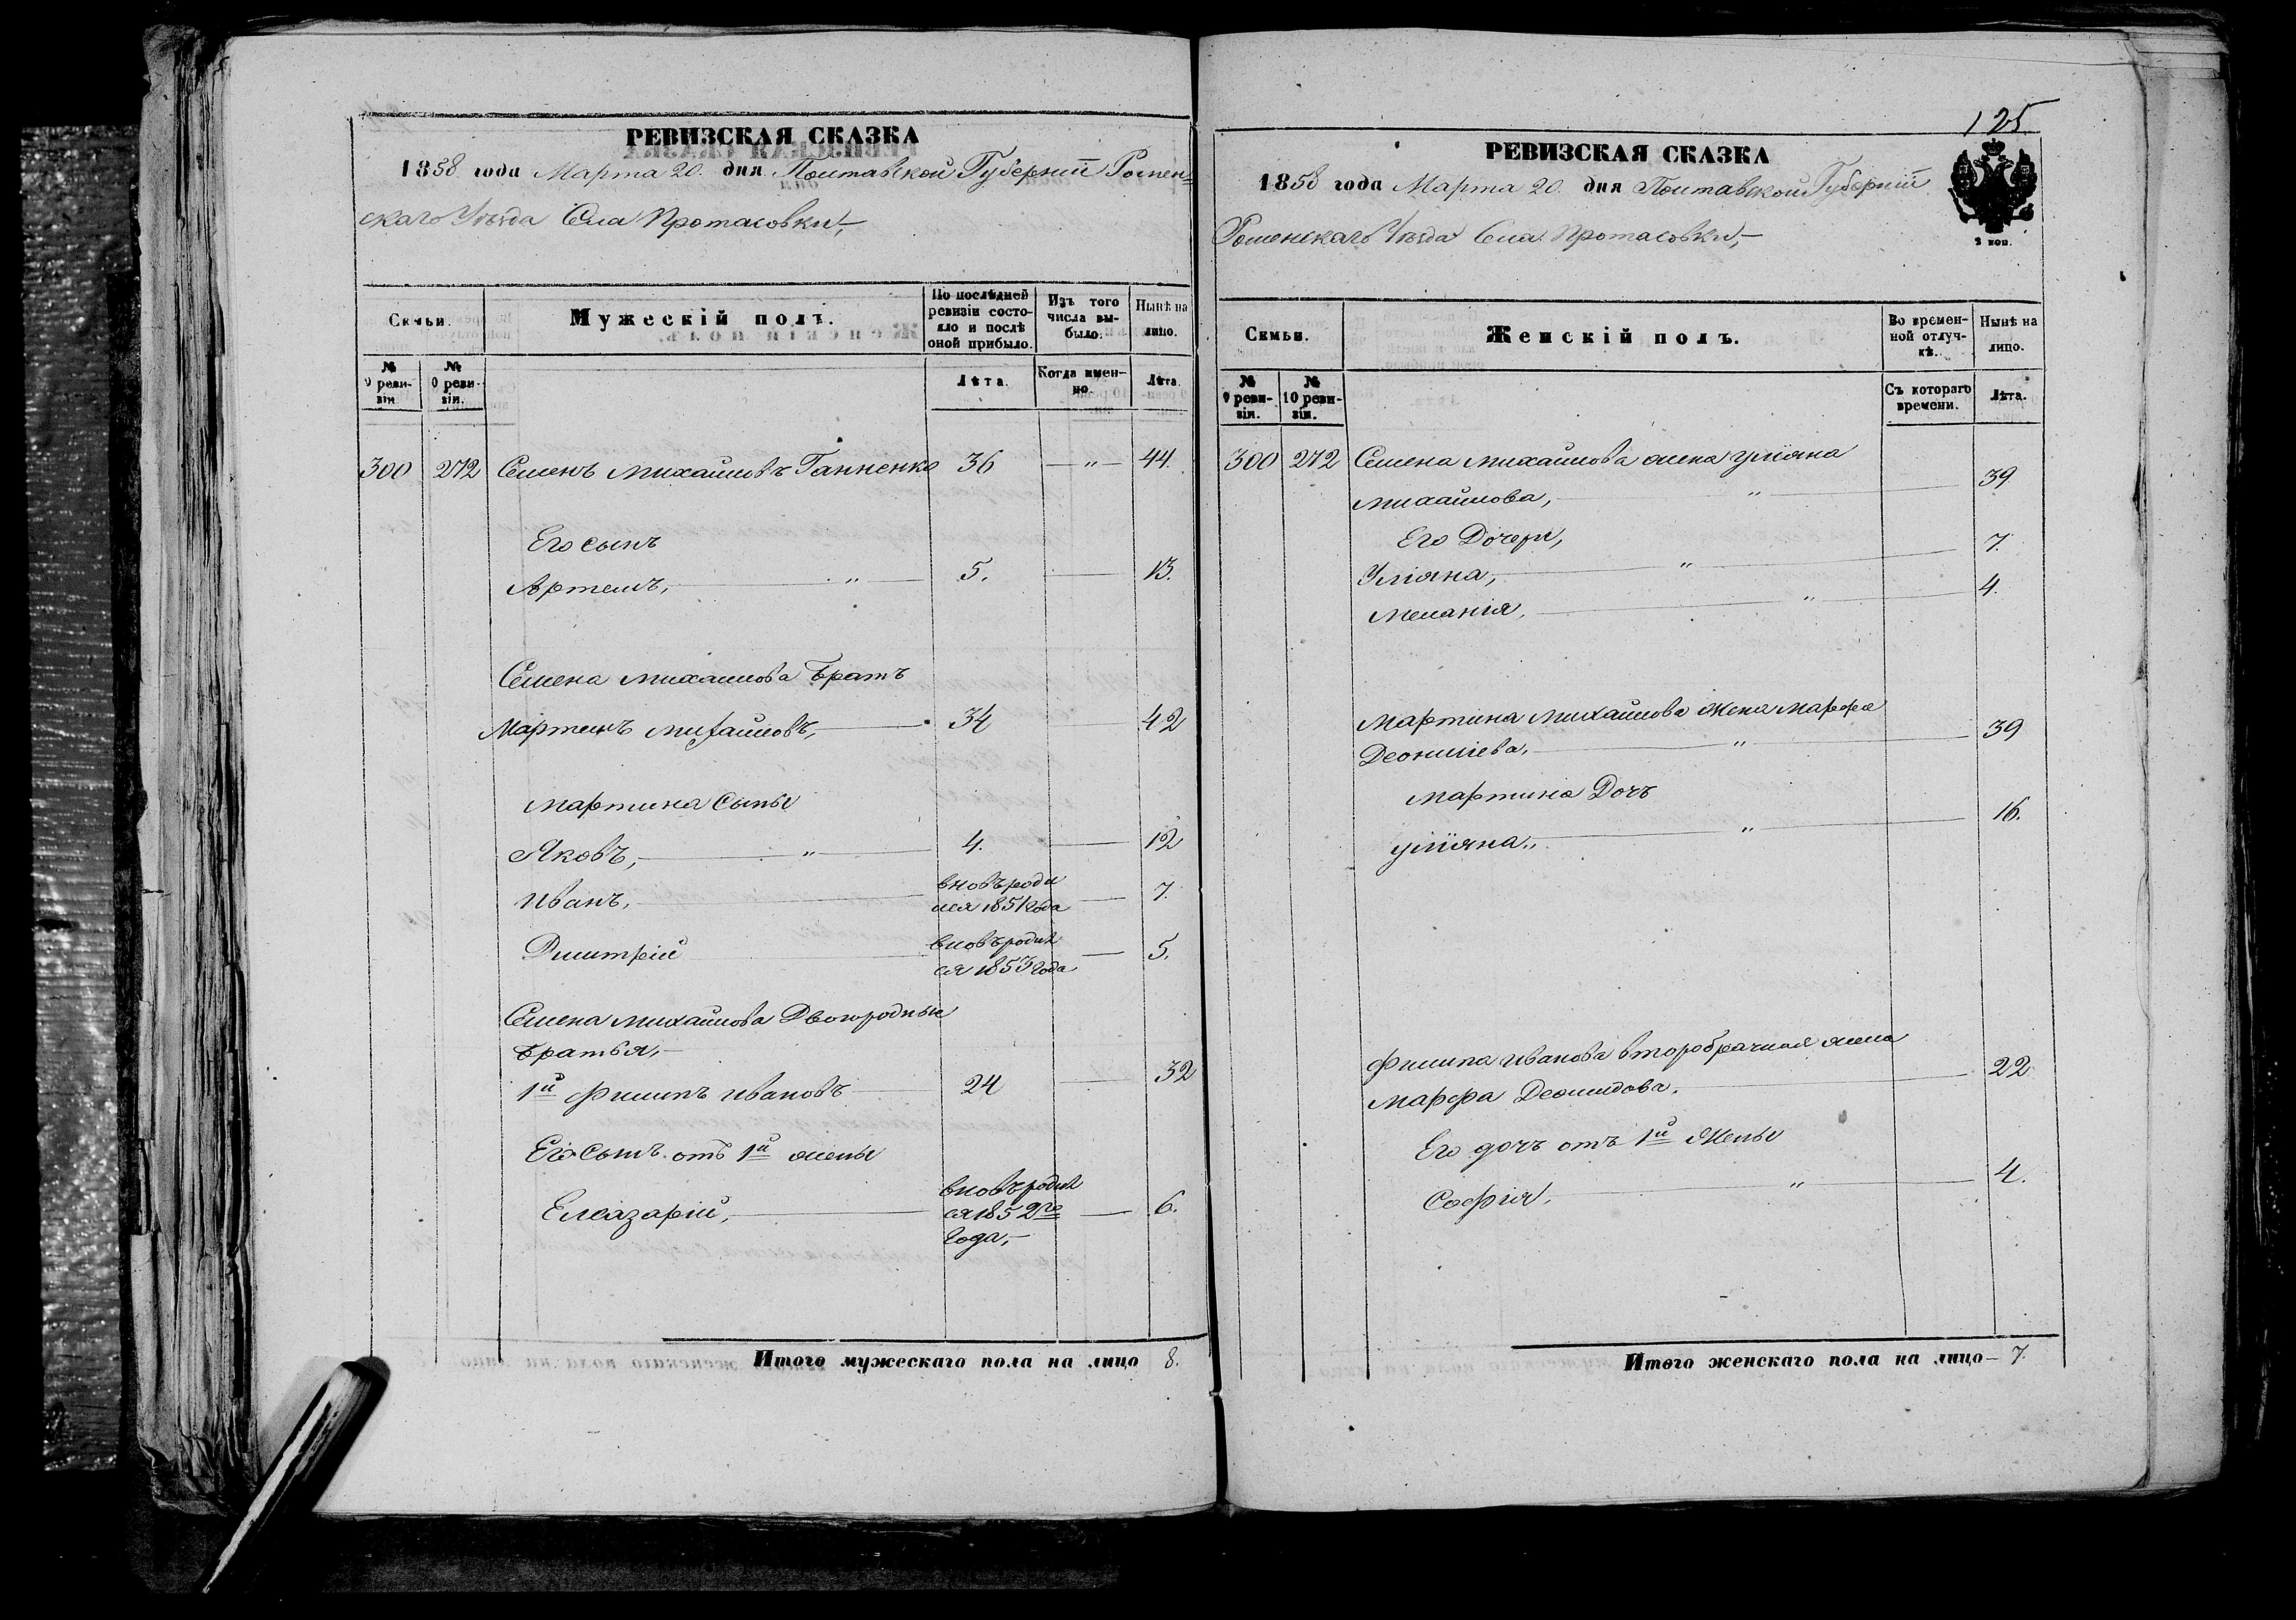 РЕВИЗСКАЯ СКАЗКА
1858 года Марта 20. дня Полтавской Губерніи Ромен-
скаго Уѣзда Села Протасовки,
Семьи.
Мужескій полъ.
По послѣдней ревизіи состояло и послѣ оной прибыло.
Изъ того числа выбыло.
Нынѣ на лицо.
№ 9 ревизіи.
№ 10 ревизіи.
Лѣта.
Когда именно.
Лѣта.
300 272 Семенъ Михайловъ Ганненко 36 — " — 44.
Его сынъ
Артемъ, " 5. 13.
Семена Михайлова Братъ
Мартинъ Михайловъ, 34 42
Мартина Сыны
Яковъ, " 4. 12
Иванъ, вновь роди
лся 1851 года 7.
Дмитрій вновь родил
ся 1853 года 5.
Семена Михайлова Двоюродные
Братья,
1й Филипъ Ивановъ 24 32
Его сынъ отъ 1й жены
Елеазарій, вновь родил
ся 1852го 6.
года,
Итого мужескаго пола на лицо 8.
125
РЕВИЗСКАЯ СКАЗКА
1858 года Марта 20. дня Полтавской Губерніи
Роменскаго Уѣзда Села Протасовки,
2 коп.
Семьи.
Женскій полъ.
Во временной отлучкѣ.
Нынѣ на лицо.
№ 9 ревизіи.
№ 10 ревизіи.
Съ котораго времени.
Лѣта.
300 272 Семена Михайлова жена Уліяна
Михайлова, " 39
Его Дочери,
Уліяна, " 7.
Меланія, " 4.
Мартина Михайлова жена Марфа
" 39
Мартина Дочь
Уліяна, " 16.
Филипа Иванова второбрачная жена
Марфа 22
Его дочь отъ 1й жены
Софія, " 4.
Итого женскаго пола на лицо — 7.